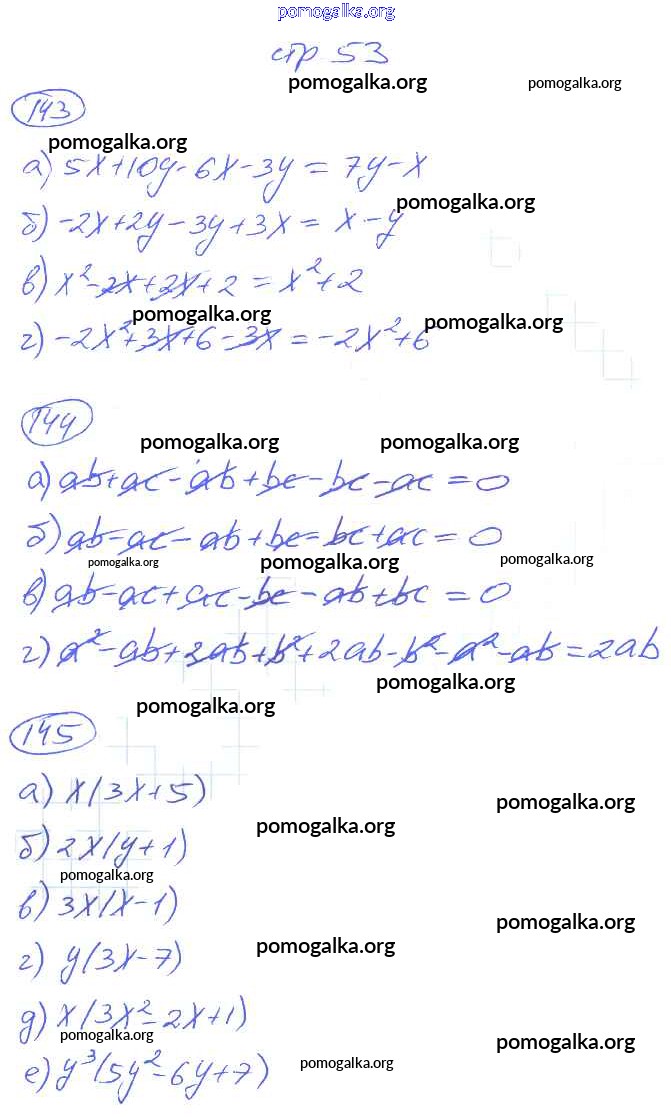 pomogalka.org
стр 53
pomogalka.org pomogalka.org
143
pomogalka.org
а) 5x+10y-6x-3y = 7y-x
pomogalka.org
б) -2x+2y-3y+3x = x-y
в) x²-2x+2x+2 = x²+2
pomogalka.org pomogalka.org
г) -2x²+3x+6-3x = -2x²+6
144
pomogalka.org pomogalka.org
а) ab+ac-ab+bc-bc-ac=0
б) ab-ac-ab+bc-bc+ac=0
pomogalka.org pomogalka.org pomogalka.org
в) ab-ac+ac-bc-ab+bc=0
г) a²-ab+2ab+b²+2ab-b²-a²-ab=2ab
pomogalka.org
pomogalka.org
145
а) x(3x+5)
pomogalka.org
pomogalka.org
б) 2x(y+1)
pomogalka.org
в) 3x(x-1)
pomogalka.org
pomogalka.org
г) y(3x-7)
д) x(3x²-2x+1)
pomogalka.org pomogalka.org
pomogalka.org
е) y³(5y²-6y+7)